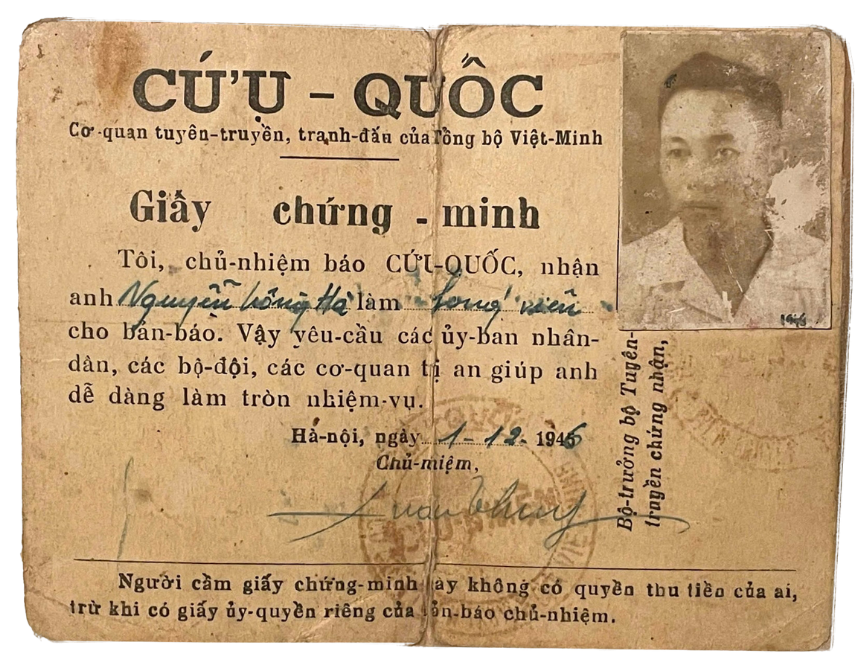 CỨU - QUỐC
Cơ-quan tuyên-truyền, tranh-đấu của Tổng bộ Việt-Minh
Giấy chứng - minh
Tôi, chủ-nhiệm báo CỨU-QUỐC, nhận
anh Nguyễn Hồng Hà làm viên
cho bản-báo. Vậy yêu-cầu các ủy-ban nhân-
dân, các bộ-đội, các cơ-quan trị an giúp anh
dễ dàng làm tròn nhiệm-vụ.
Hà-nội, ngày 1-12-1946
Chủ-nhiệm,
Xuân Thủy
Người cầm giấy chứng-minh này không có quyền thu tiền của ai,
trừ khi có giấy ủy-quyền riêng của bản-báo chủ-nhiệm.
Bộ-trưởng bộ Tuyên-
truyền chứng nhận,